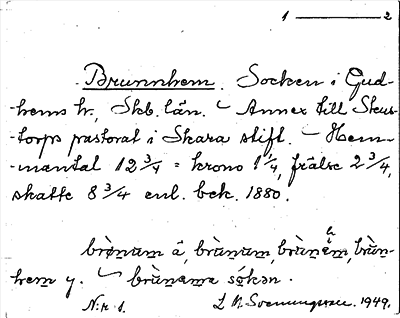 1 ——— 2
Brunnhem. Socken i Gud-
-hems hr, Skb. län. – Annex till Sten-
-torps pastorat i Skara stift. – Hem-
-mantal 12 3/4 = krono 1 1/4, frälse 2 3/4,
skatte 8 3/4 enl. bek. 1880.
brònum ä, brùnum, brùnem, brùn-
hem y. – brùnama sókən.
N:r 1. 1949.